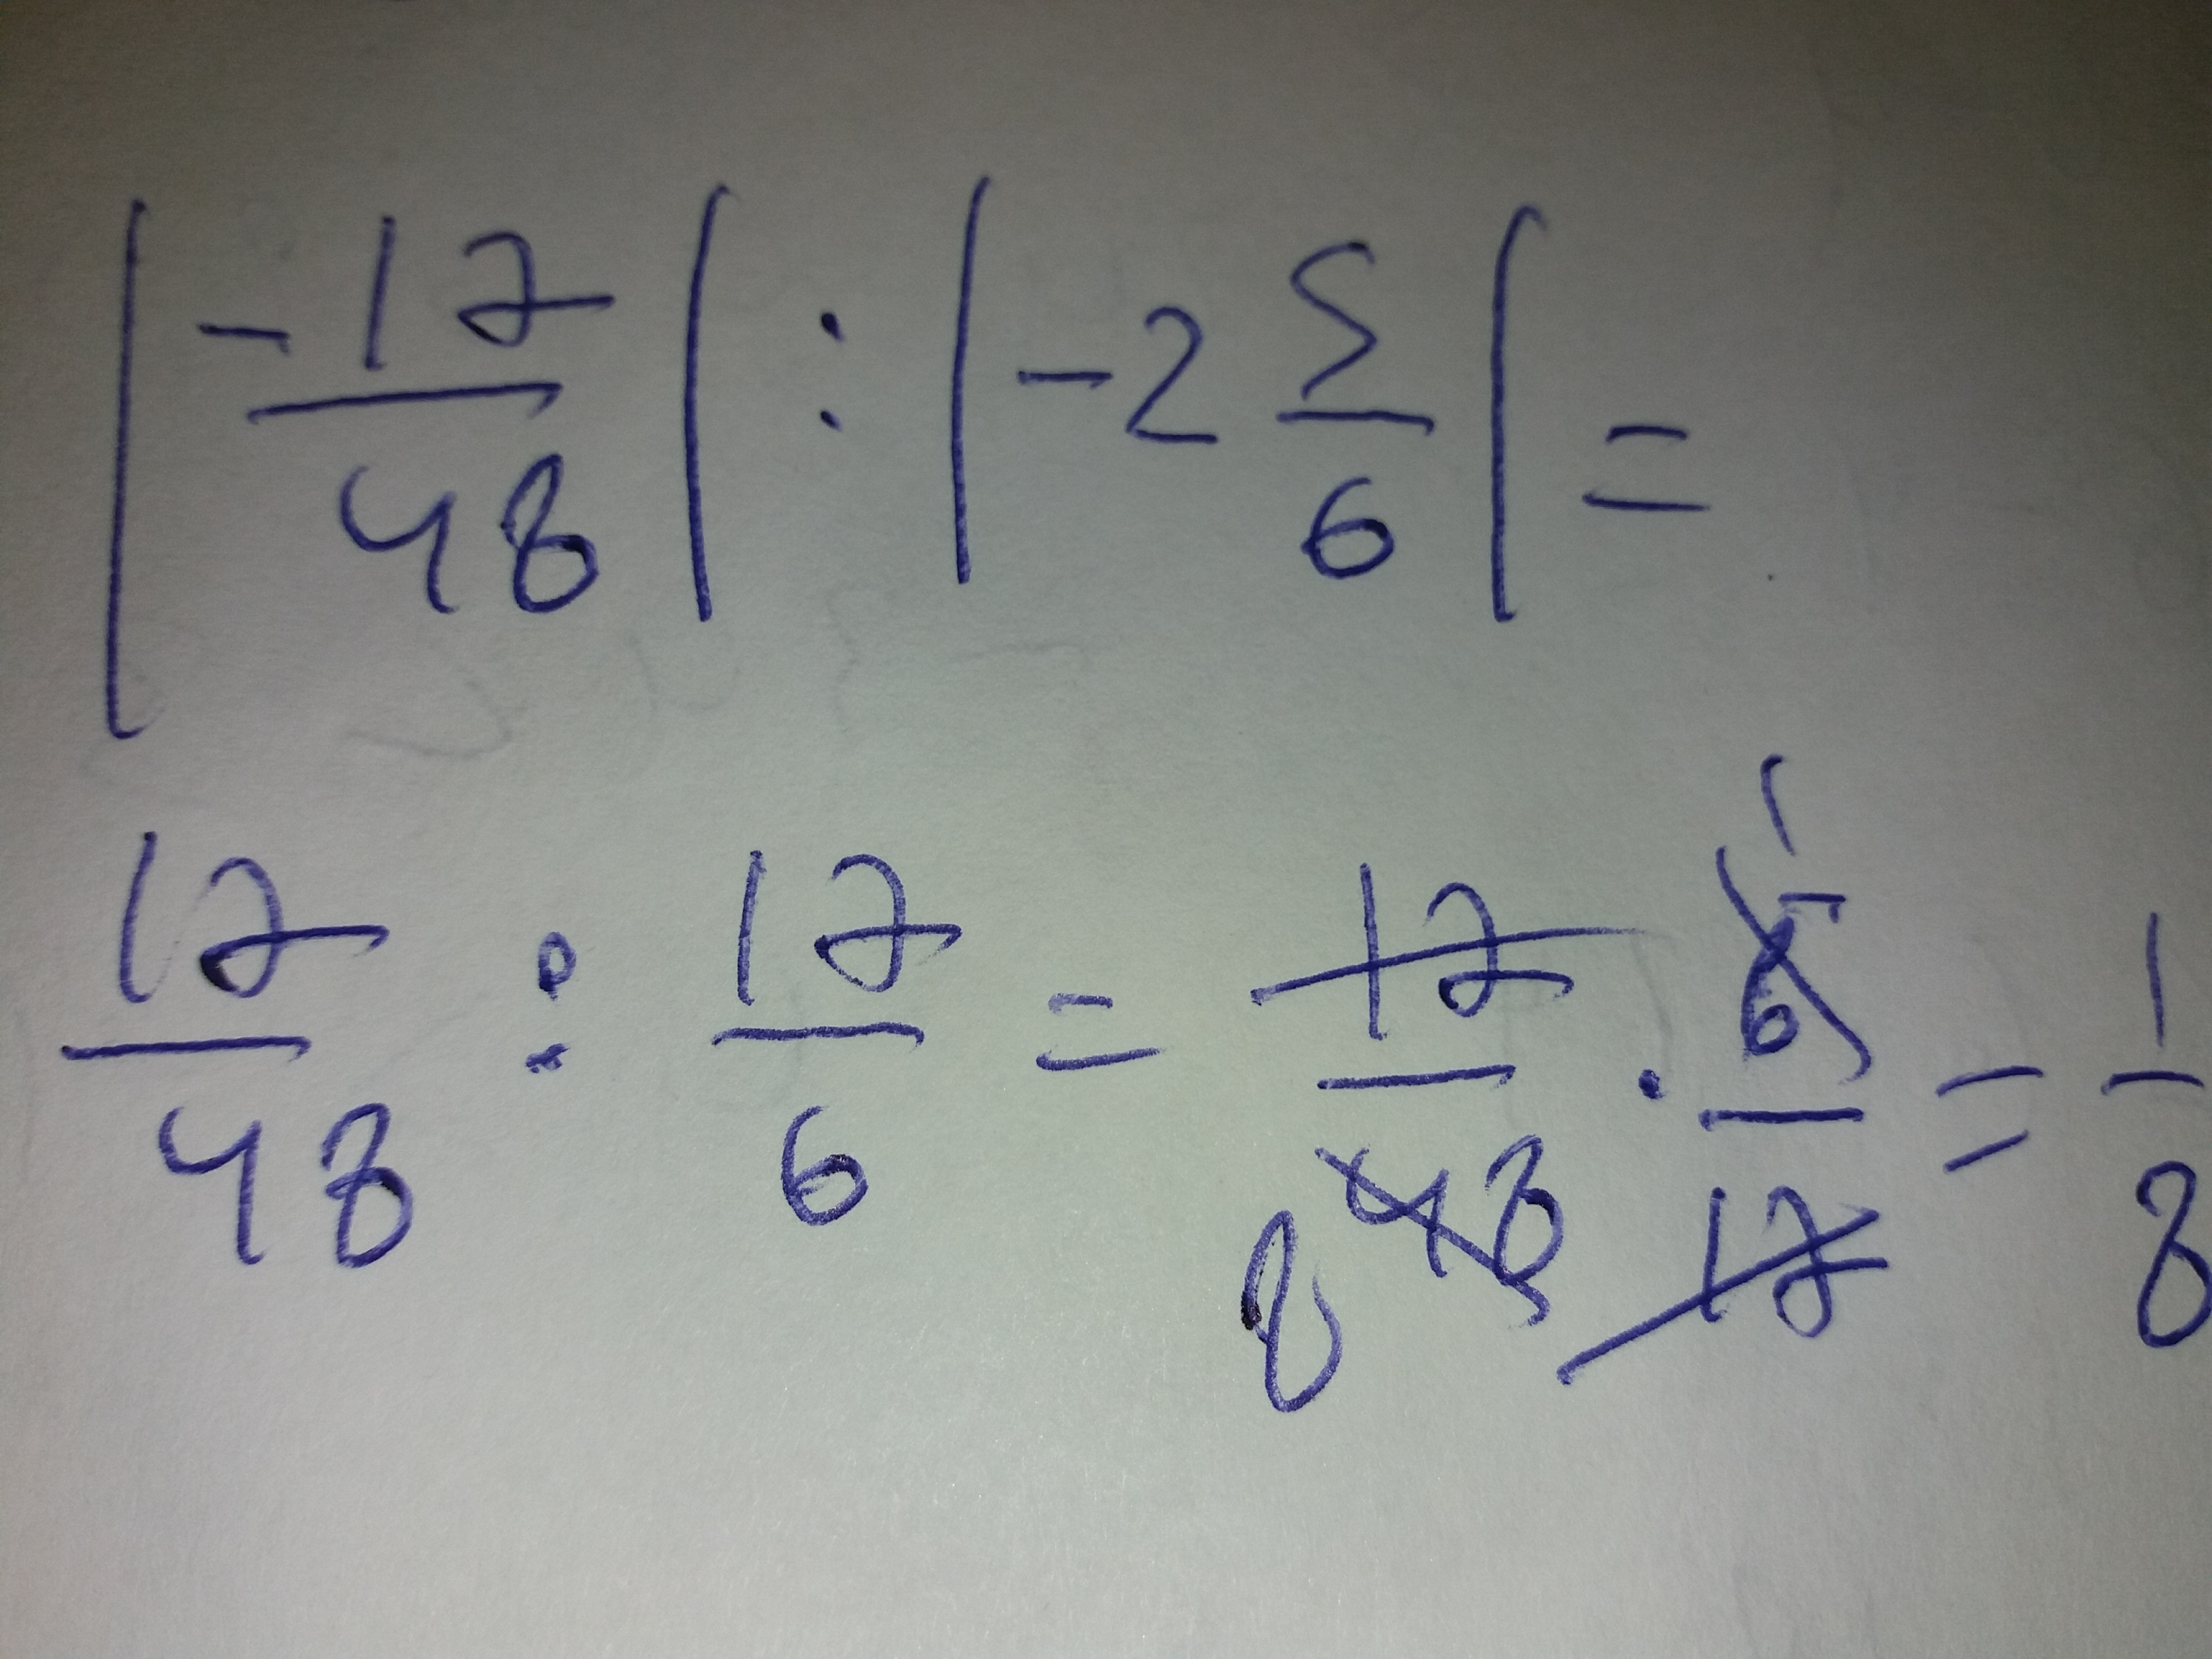 |-17/48| : |-2 5/6| =
17/48 : 17/6 = 17/48 8 · 6 1/17 = 1/8